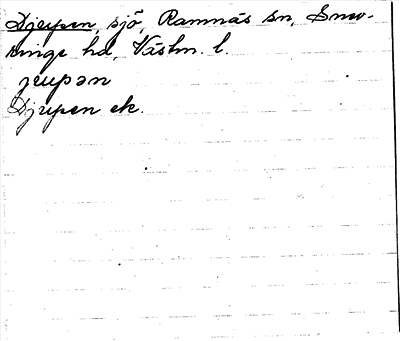 Djupen, sjö, Ramnäs sn, Snev-
ringe hd, Västm. l.
jɯpən
Djupen ek.